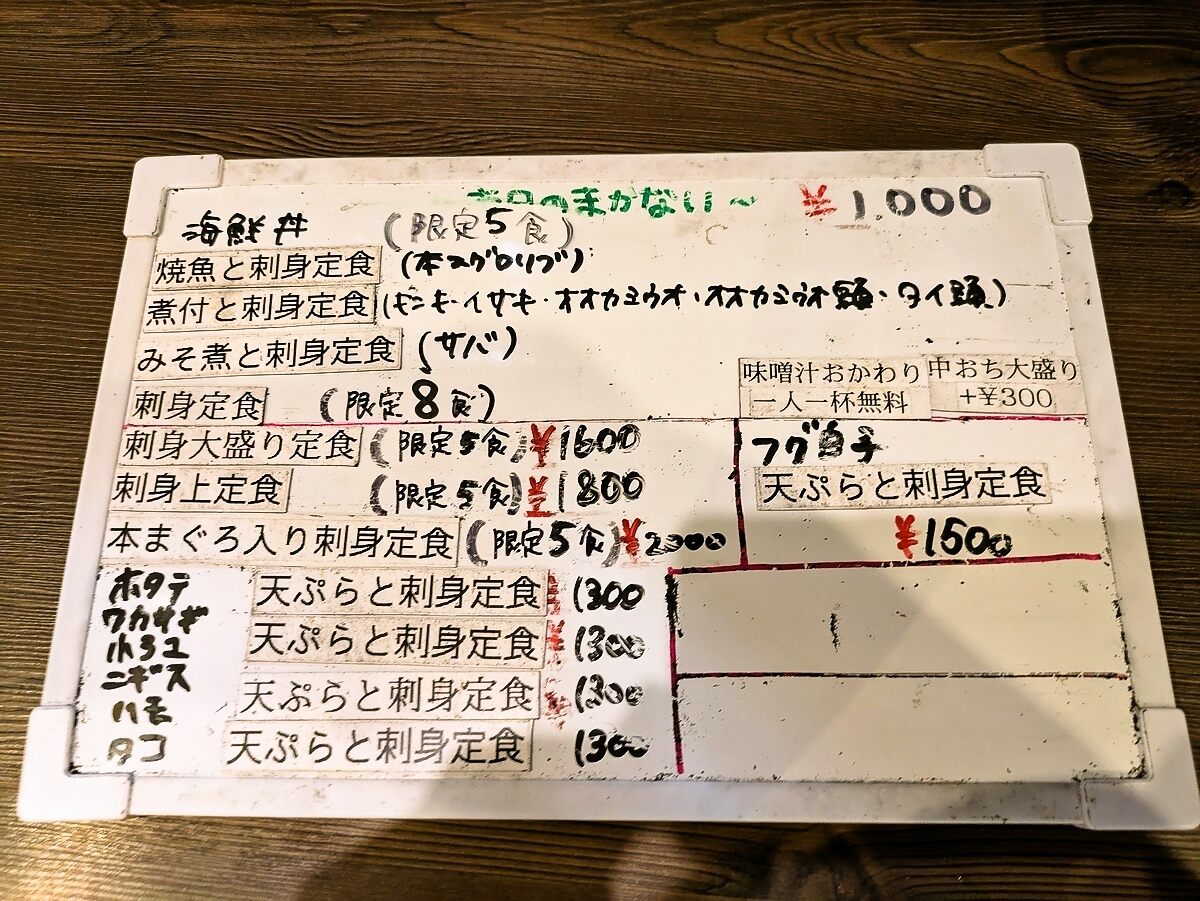 本日のまかない~ ¥1,000
海鮮丼 (限定5食)
焼魚と刺身定食 (本マグロリブ)
煮付と刺身定食 (キンキ・イサキ・オオカミウオ・オオカミウオ頭・タイ頭)
みそ煮と刺身定食 (サバ)
刺身定食 (限定8食)
味噌汁おかわり
一人一杯無料
中おち大盛り
+¥300
刺身大盛り定食 (限定5食) ¥1600
刺身上定食 (限定5食) ¥1800
本まぐろ入り刺身定食 (限定5食) ¥2000
フグ白子
天ぷらと刺身定食
¥1500
ホタテ 天ぷらと刺身定食 ¥1300
ワカサギ
天ぷらと刺身定食 ¥1300
ニギス
天ぷらと刺身定食 ¥1300
ハモ
タコ 天ぷらと刺身定食 1300